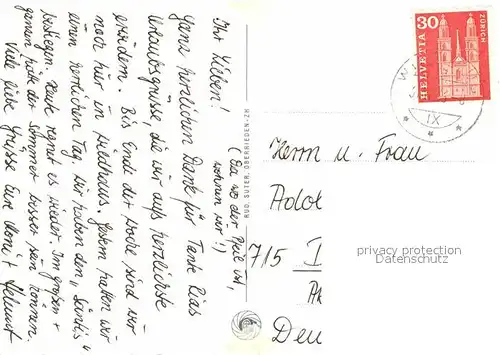 Ihr Lieben!
(Da wo der Pfeil ist,
wohnen wir!)
Ganz herzlichen Dank für Tante Lias
Urlaubsgrüsse, die wir aufs herzlichste
erwidern. Bis Ende der Woche sind wir
noch hier in Wildhaus. Gestern hatten wir
einen herrlichen Tag. Wir haben den "Säntis"
bestiegen. Heute regnet es wieder. Im großen +
ganzen hätte der Sommer besser sein können.
Viele liebe Grüsse Eure Moni + Helmut
RUD. SUTER, OBERRIEDEN-ZH
30
ZÜRICH
HELVETIA
IX
Herrn u. Frau
Adol
715
Deu
privacy protection
Datenschutz